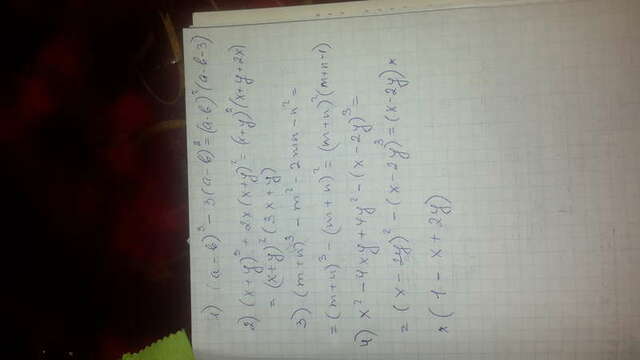 1) (a-b)³ - 3(a-b)² = (a-b)²(a-b-3)
2) (x+y)³ + 2x(x+y)² = (x+y)²(x+y+2x)
= (x+y)²(3x+y)
3) (m+n)³ - m² - 2mn - n² =
= (m+n)³ - (m+n)² = (m+n)²(m+n-1)
4) x² - 4xy + 4y² - (x-2y)³ =
= (x-2y)² - (x-2y)³ = (x-2y)×
×(1 - x + 2y)